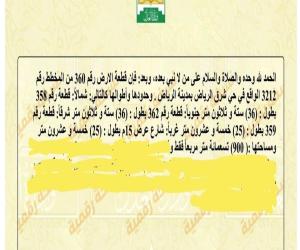 الحمد لله وحده والصلاة والسلام على من لا نبي بعده، وبعد: فإن قطعة الارض رقم 360 من المخطط رقم
3212 الواقع في حي شرق الرياض بمدينة الرياض . وحدودها وأطوالها كالتالي: شمالاً: قطعة رقم 358
بطول : (36) ستة و ثلاثون متر جنوباً: قطعة رقم 362 بطول : (36) ستة و ثلاثون متر شرقاً: قطعة رقم
359 بطول : (25) خمسة و عشرون متر غرباً: شارع عرض 15م بطول : (25) خمسة و عشرون متر
ومساحتها : (900) تسعمائة متر مربعاً فقط و